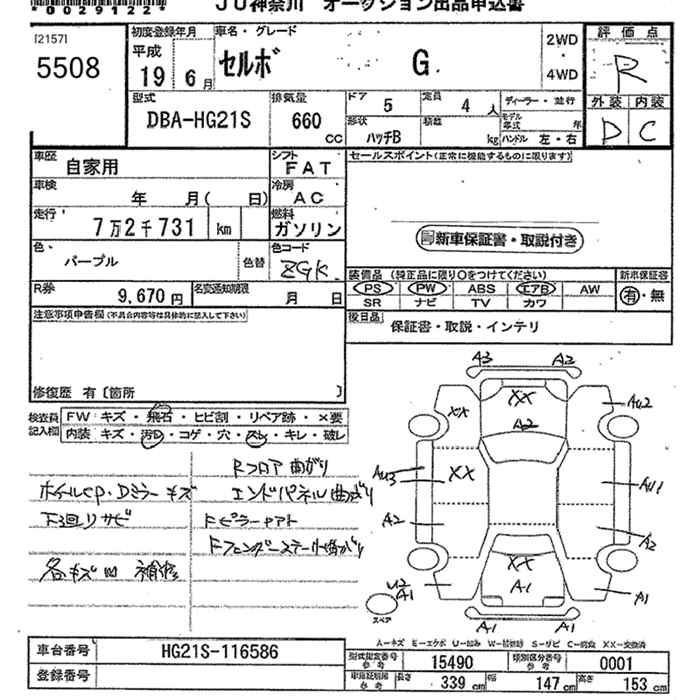 *0029122*
JU神奈川 オークション出品申込書
[2157]
5508
初度登録年月
平成
19 6月
車名・グレード
セルボ G
2WD
4WD
評価点
R
外装 内装
D C
型式
DBA-HG21S
排気量
660
cc
ドア 5
定員 4 人
ディーラー・並行
形状 ハッチB
積載 kg
モデル年式 年
ハンドル 左・右
車歴 自家用
シフト FAT
セールスポイント(正常に機能するものに限ります)
車検 年 月( 日)
冷房 AC
走行 7万2千731 km
燃料 ガソリン
新車保証書・取説付き
色 パープル
色替
色コード ZGK
装備品 (純正品に限り○をつけてください)
新車保証書
PS PW ABS エアB AW
SR ナビ TV カワ
有・無
R券 9,670円
名変通知期限 月 日
後日品
保証書・取説・インテリ
注意事項申告欄(不具合内容等は具体的に記入して下さい)
修復歴 有〔箇所 〕
検査員記入欄
FW キズ・飛石・ヒビ割・リペア跡・×要
内装 キズ・汚れ・コゲ・穴・スレ・キレ・破レ
Rフロア曲がり
ホイルCP・Dミラーキズ エンドパネル曲がり
下回リサビ
各キズ凹 補修
A3 A2
XX XX AU2
A2
AU3 XX AU1
A2 A2
XX
A1
U2
A1 A1
A1 A1
スペア
A-キズ E-エクボ U-凹み W-補修跡 S-サビ C-腐食 XX-交換済
車台番号 HG21S-116586
登録番号
型式指定番号 参考 15490
類別区分番号 参考 0001
車両証明書 参考
長さ 339 cm
幅 147 cm
高さ 153 cm